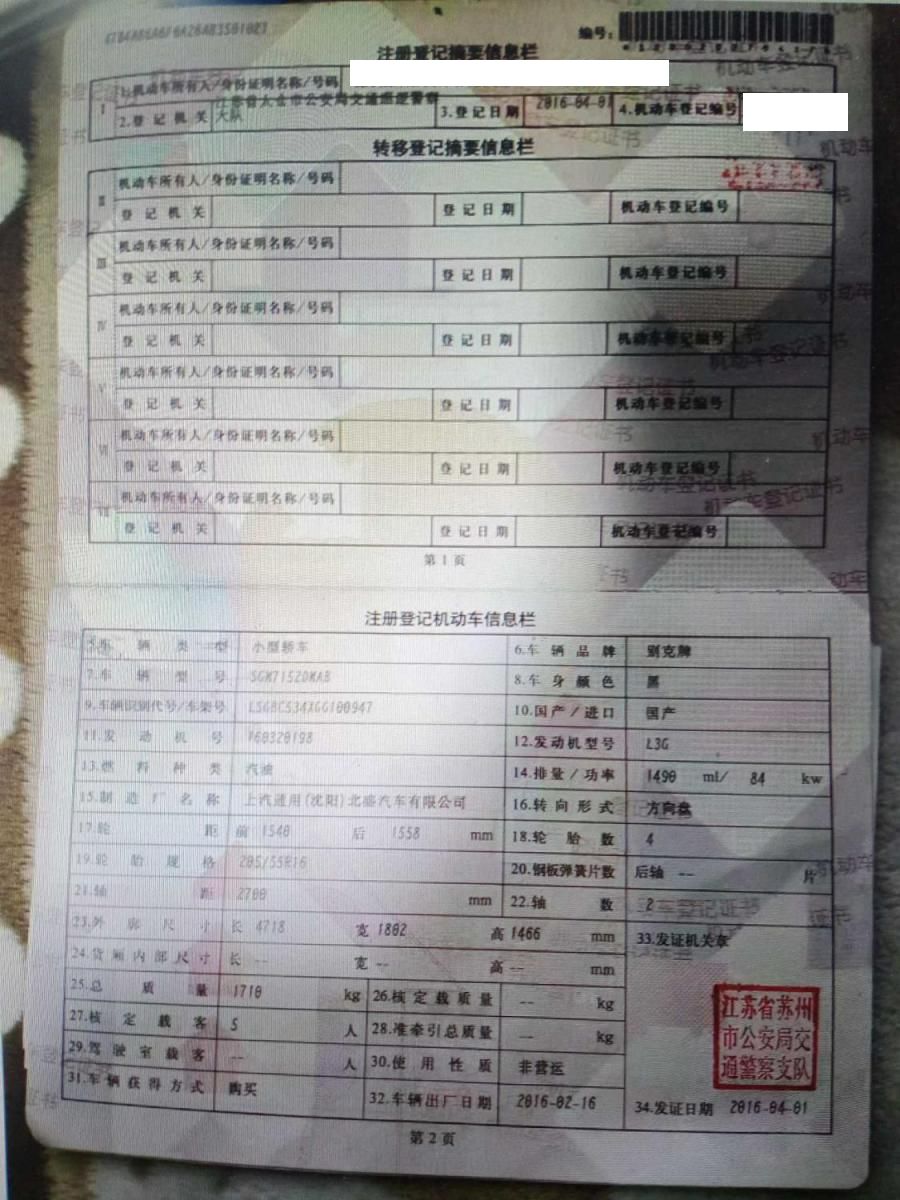 编号:
注册登记摘要信息栏
I 1.机动车所有人/身份证明名称/号码
2.登记机关 江苏省太仓市公安局交通巡逻警察大队 3.登记日期 2016-04-01 4.机动车登记编号
转移登记摘要信息栏
II 机动车所有人/身份证明名称/号码
登记机关 登记日期 机动车登记编号
III 机动车所有人/身份证明名称/号码
登记机关 登记日期 机动车登记编号
IV 机动车所有人/身份证明名称/号码
登记机关 登记日期 机动车登记编号
V 机动车所有人/身份证明名称/号码
登记机关 登记日期 机动车登记编号
VI 机动车所有人/身份证明名称/号码
登记机关 登记日期 机动车登记编号
VII 机动车所有人/身份证明名称/号码
登记机关 登记日期 机动车登记编号
第1页
注册登记机动车信息栏
5.车辆类型 小型轿车 6.车辆品牌 别克牌
7.车辆型号 8.车身颜色 黑
9.车辆识别代号/车架号 10.国产/进口 国产
11.发动机号 160320198 12.发动机型号 L3G
13.燃料种类 汽油 14.排量/功率 1490 ml/ 84 kw
15.制造厂名称 上汽通用(沈阳)北盛汽车有限公司 16.转向形式 方向盘
17.轮距 前 1540 后 1558 mm 18.轮胎数 4
19.轮胎规格 205/55R16 20.钢板弹簧片数 后轴 -- 片
21.轴距 2700 mm 22.轴数 2
23.外廓尺寸 长 4718 宽 1802 高 1466 mm 33.发证机关章
24.货厢内部尺寸 长 -- 宽 -- 高 -- mm
25.总质量 1710 kg 26.核定载质量 -- kg
27.核定载客 5 人 28.准牵引总质量 -- kg
29.驾驶室载客 -- 人 30.使用性质 非营运
31.车辆获得方式 购买 32.车辆出厂日期 2016-02-16 34.发证日期 2016-04-01
江苏省苏州
市公安局交
通警察支队
第2页